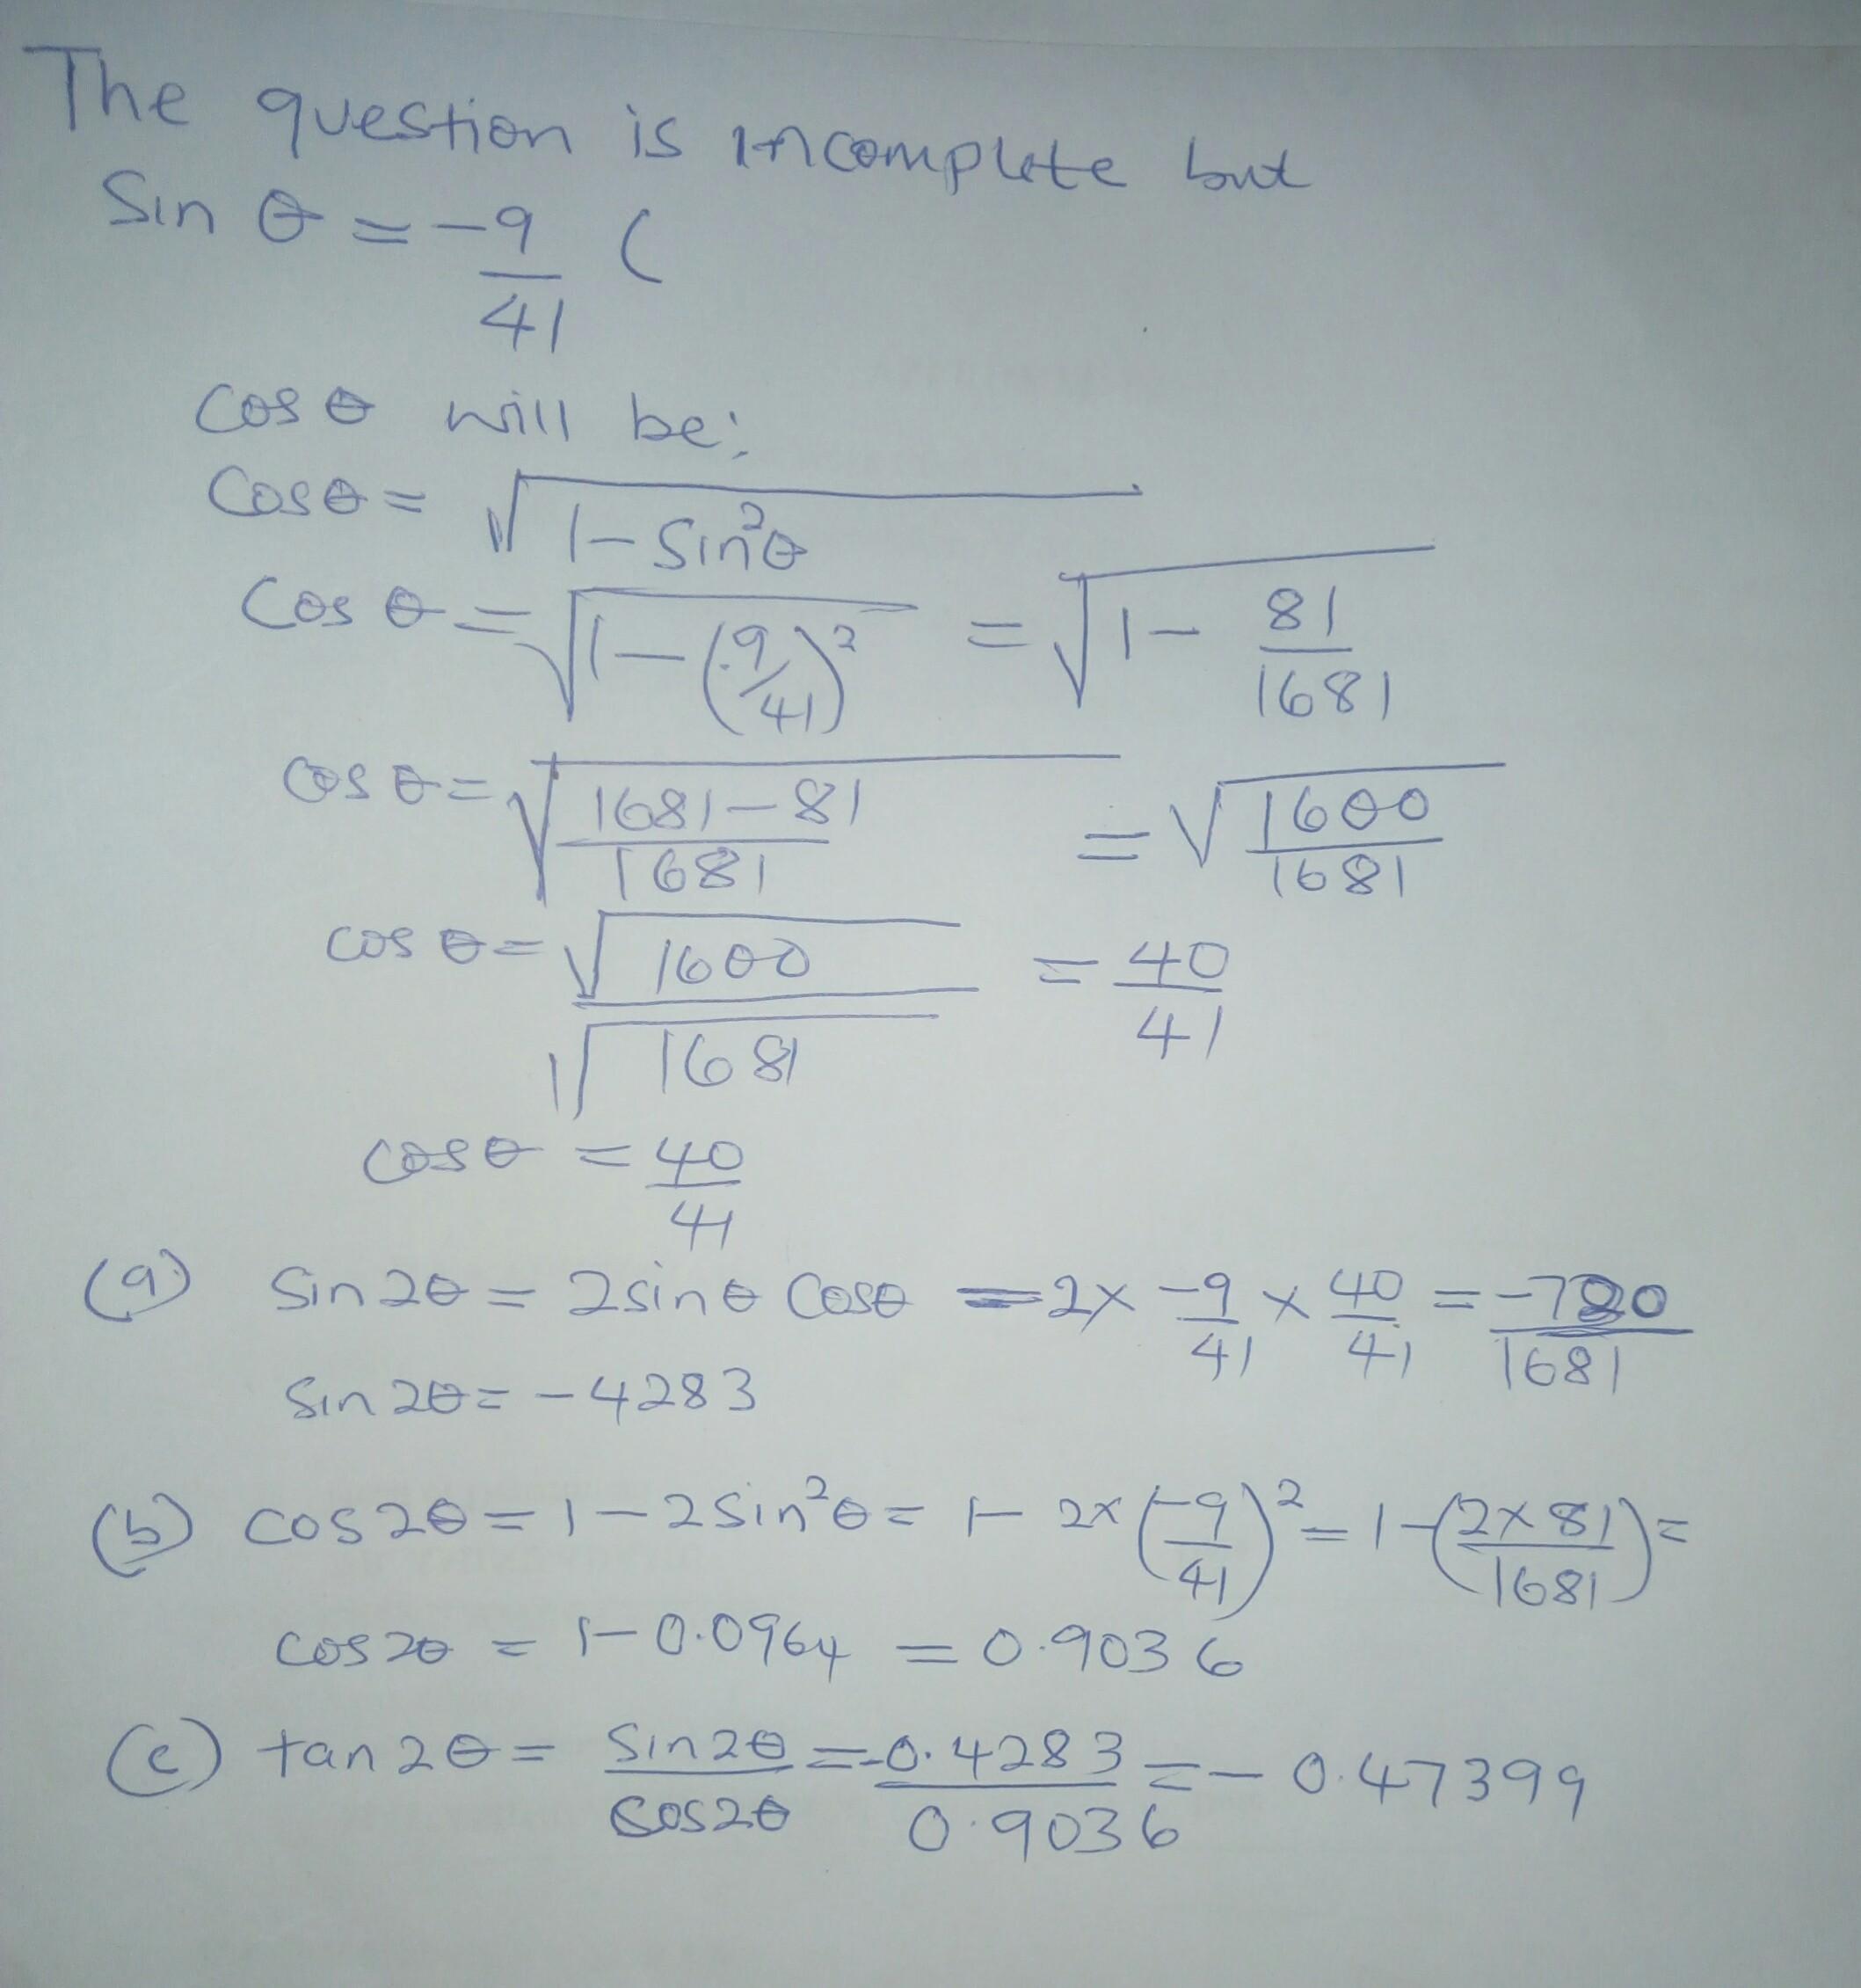 The question is incomplete but
Sin θ = -9/41 (
cos θ will be;
Cos θ = √(1 - Sin²θ)
Cos θ = √(1 - (-9/41)²) = √(1 - 81/1681)
Cos θ = √((1681 - 81)/1681) = √(1600/1681)
cos θ = √1600/√1681 = 40/41
cos θ = 40/41
(a) Sin 2θ = 2 sin θ Cos θ = 2 × -9/41 × 40/41 = -720/1681
Sin 2θ = -4283
(b) cos 2θ = 1 - 2 Sin²θ = 1 - 2 × (-9/41)² = 1 - (2×81/1681) =
cos 2θ = 1 - 0.0964 = 0.9036
(c) tan 2θ = Sin 2θ/Cos 2θ = -0.4283/0.9036 = -0.47399